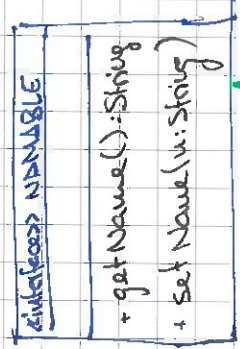 <<interface>> NAMABLE
+ getName():String
+ setName(n:String)